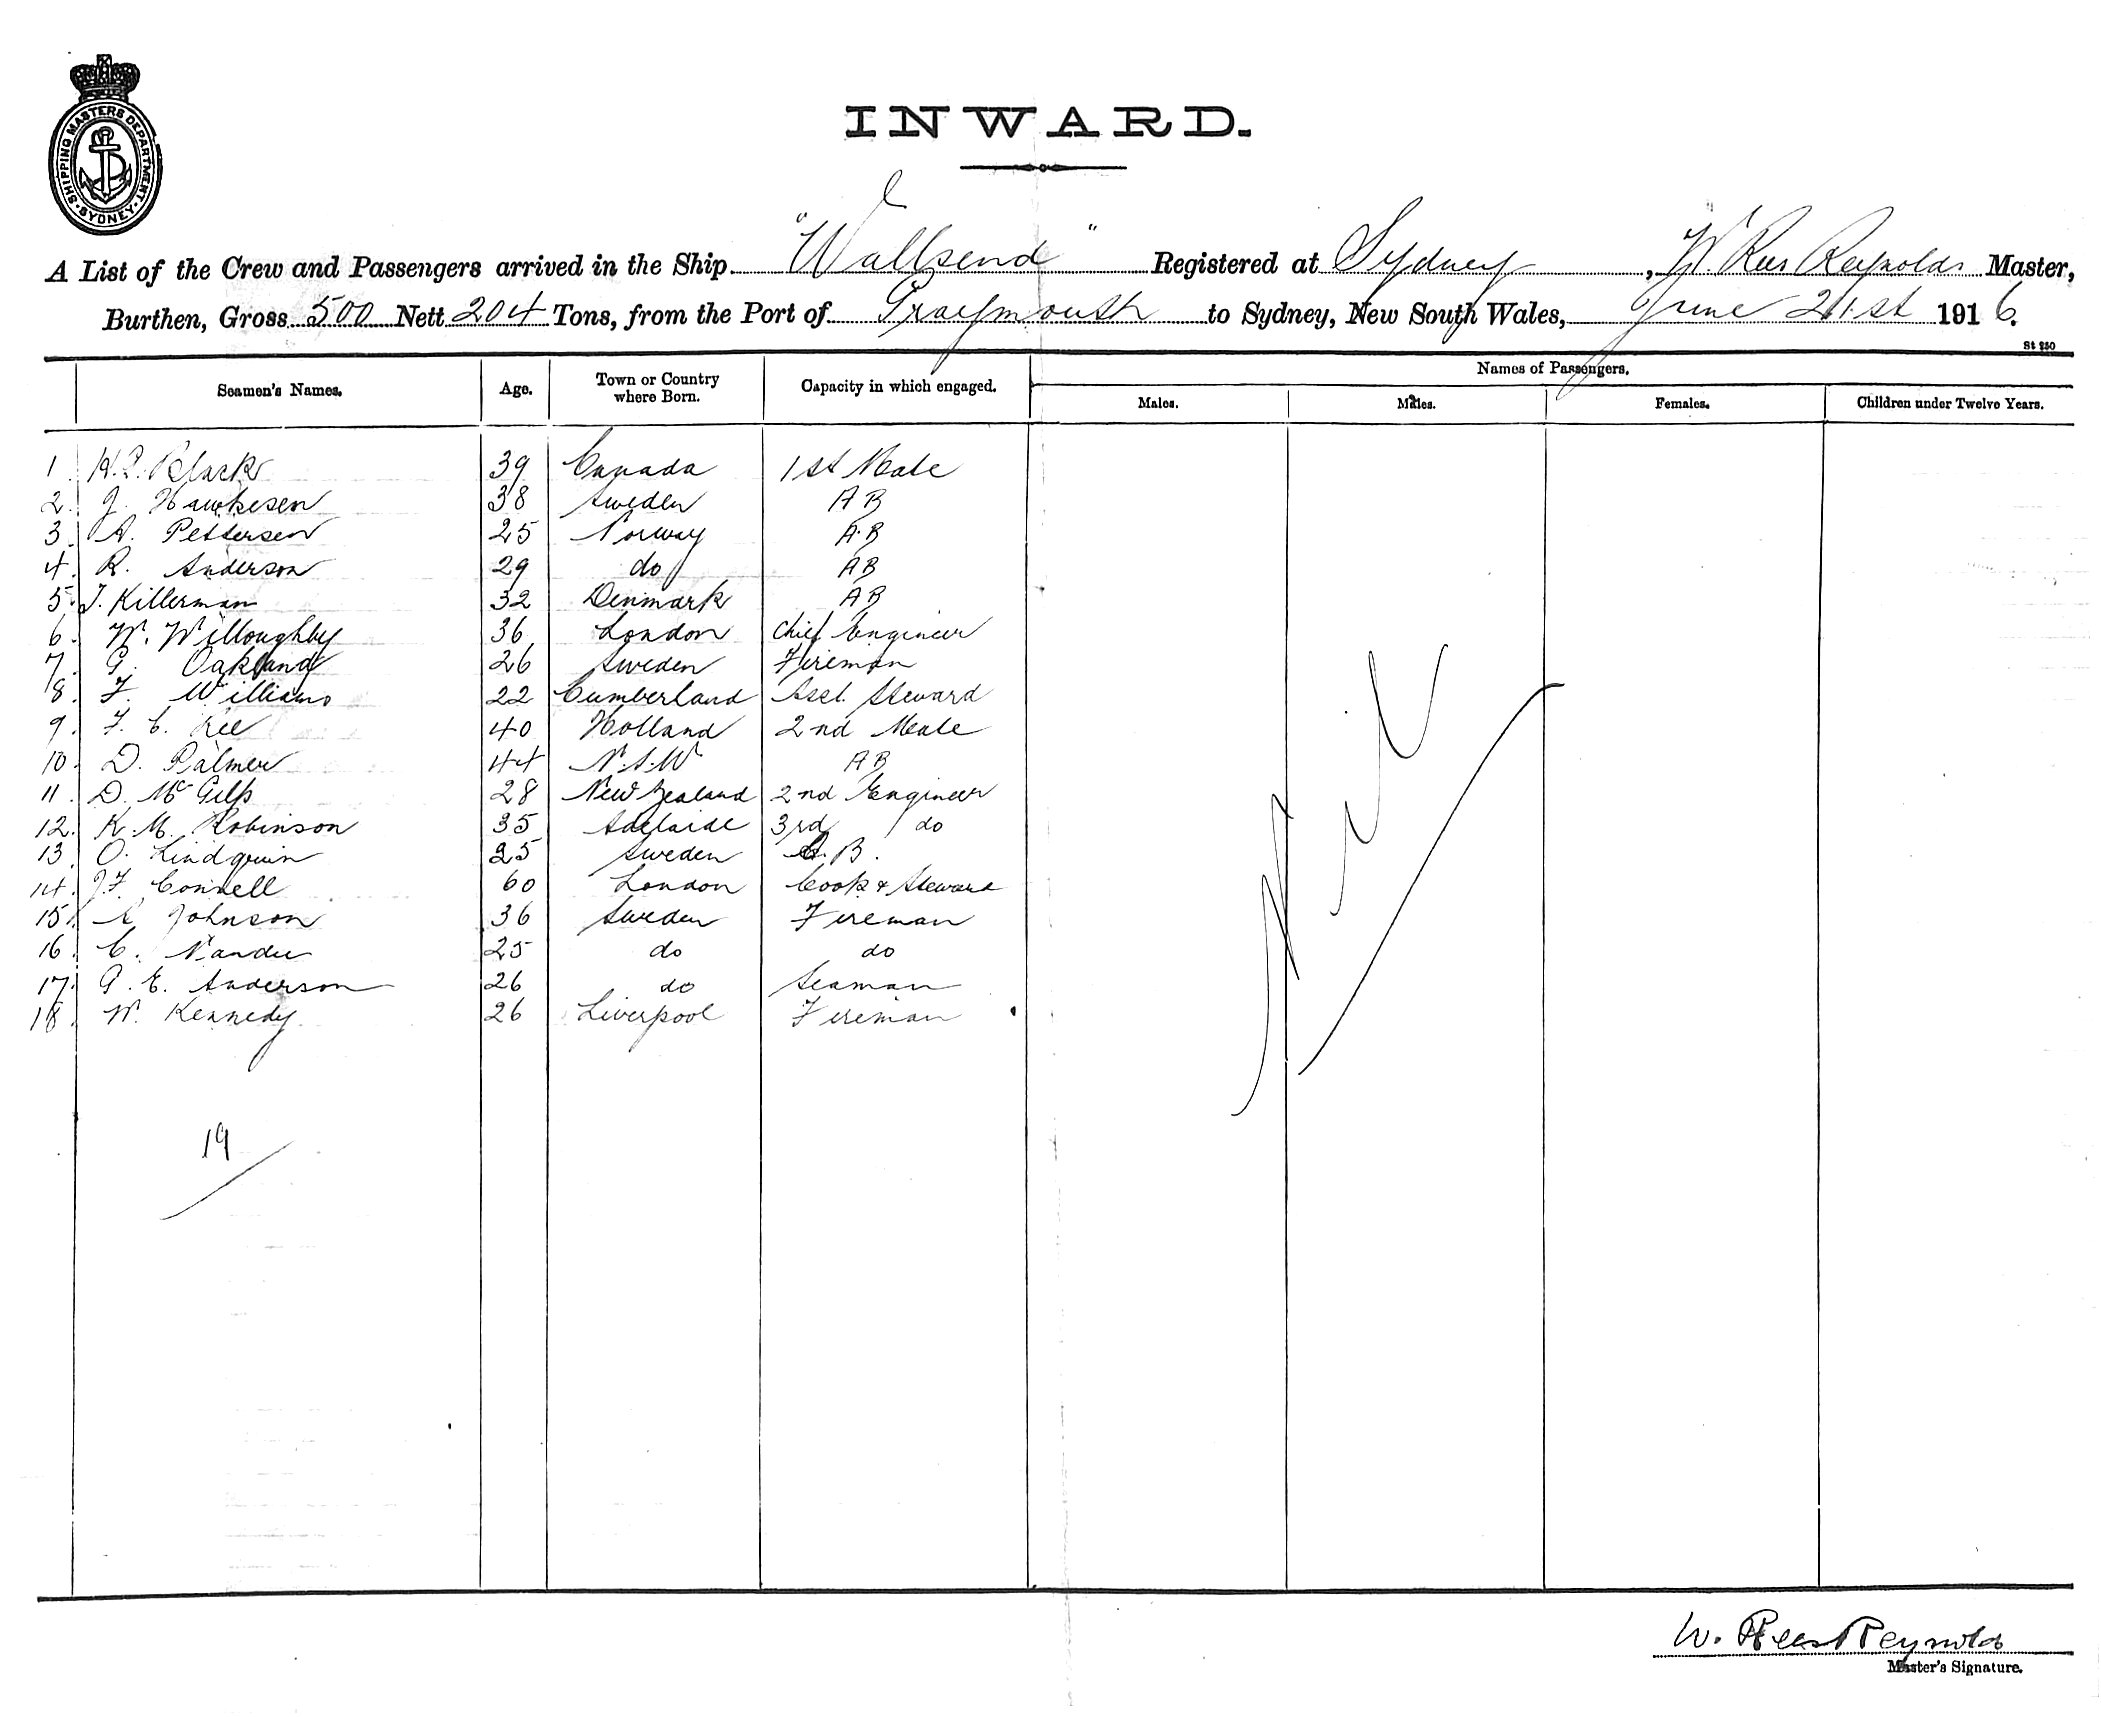 SHIPPING MASTERS DEPARTMENT · SYDNEY ·
INWARD.
A List of the Crew and Passengers arrived in the Ship "Wallsend" Registered at Sydney, W. Rees Reynolds Master,
Burthen, Gross 500 Nett 204 Tons, from the Port of Greymouth to Sydney, New South Wales, June 21st 1916.
St 250
Seamen's Names. Age. Town or Country where Born. Capacity in which engaged. Names of Passengers.
Males. Males. Females. Children under Twelve Years.
1 Black 39 Canada 1st Mate
2. J. Hawkesen 38 Sweden A B
3. A. Pettersen 25 Norway A.B
4. R. Anderson 29 do A B
5. J. Killerman 32 Denmark A B
6. W. Willoughby 36 London Chief Engineer
7. G. Oakland 26 Sweden Fireman
8. F. Williams 22 Cumberland Asst. Steward
9. F. C. 40 Holland 2nd Mate
10. D. Palmer 44 N.S.W A B
11. D. McGilp 28 New Zealand 2nd Engineer
12. K. M. Robinson 35 Adelaide 3rd do
13 O. 25 Sweden B.
14. J.F. Connell 60 London Cook & Steward
15. Johnson 36 Sweden Fireman
16. C. 25 do do
17. G. E. Anderson 26 do Seaman
18. W. Kennedy 26 Liverpool Fireman
Nil
19
W. Rees Reynolds
Master's Signature.